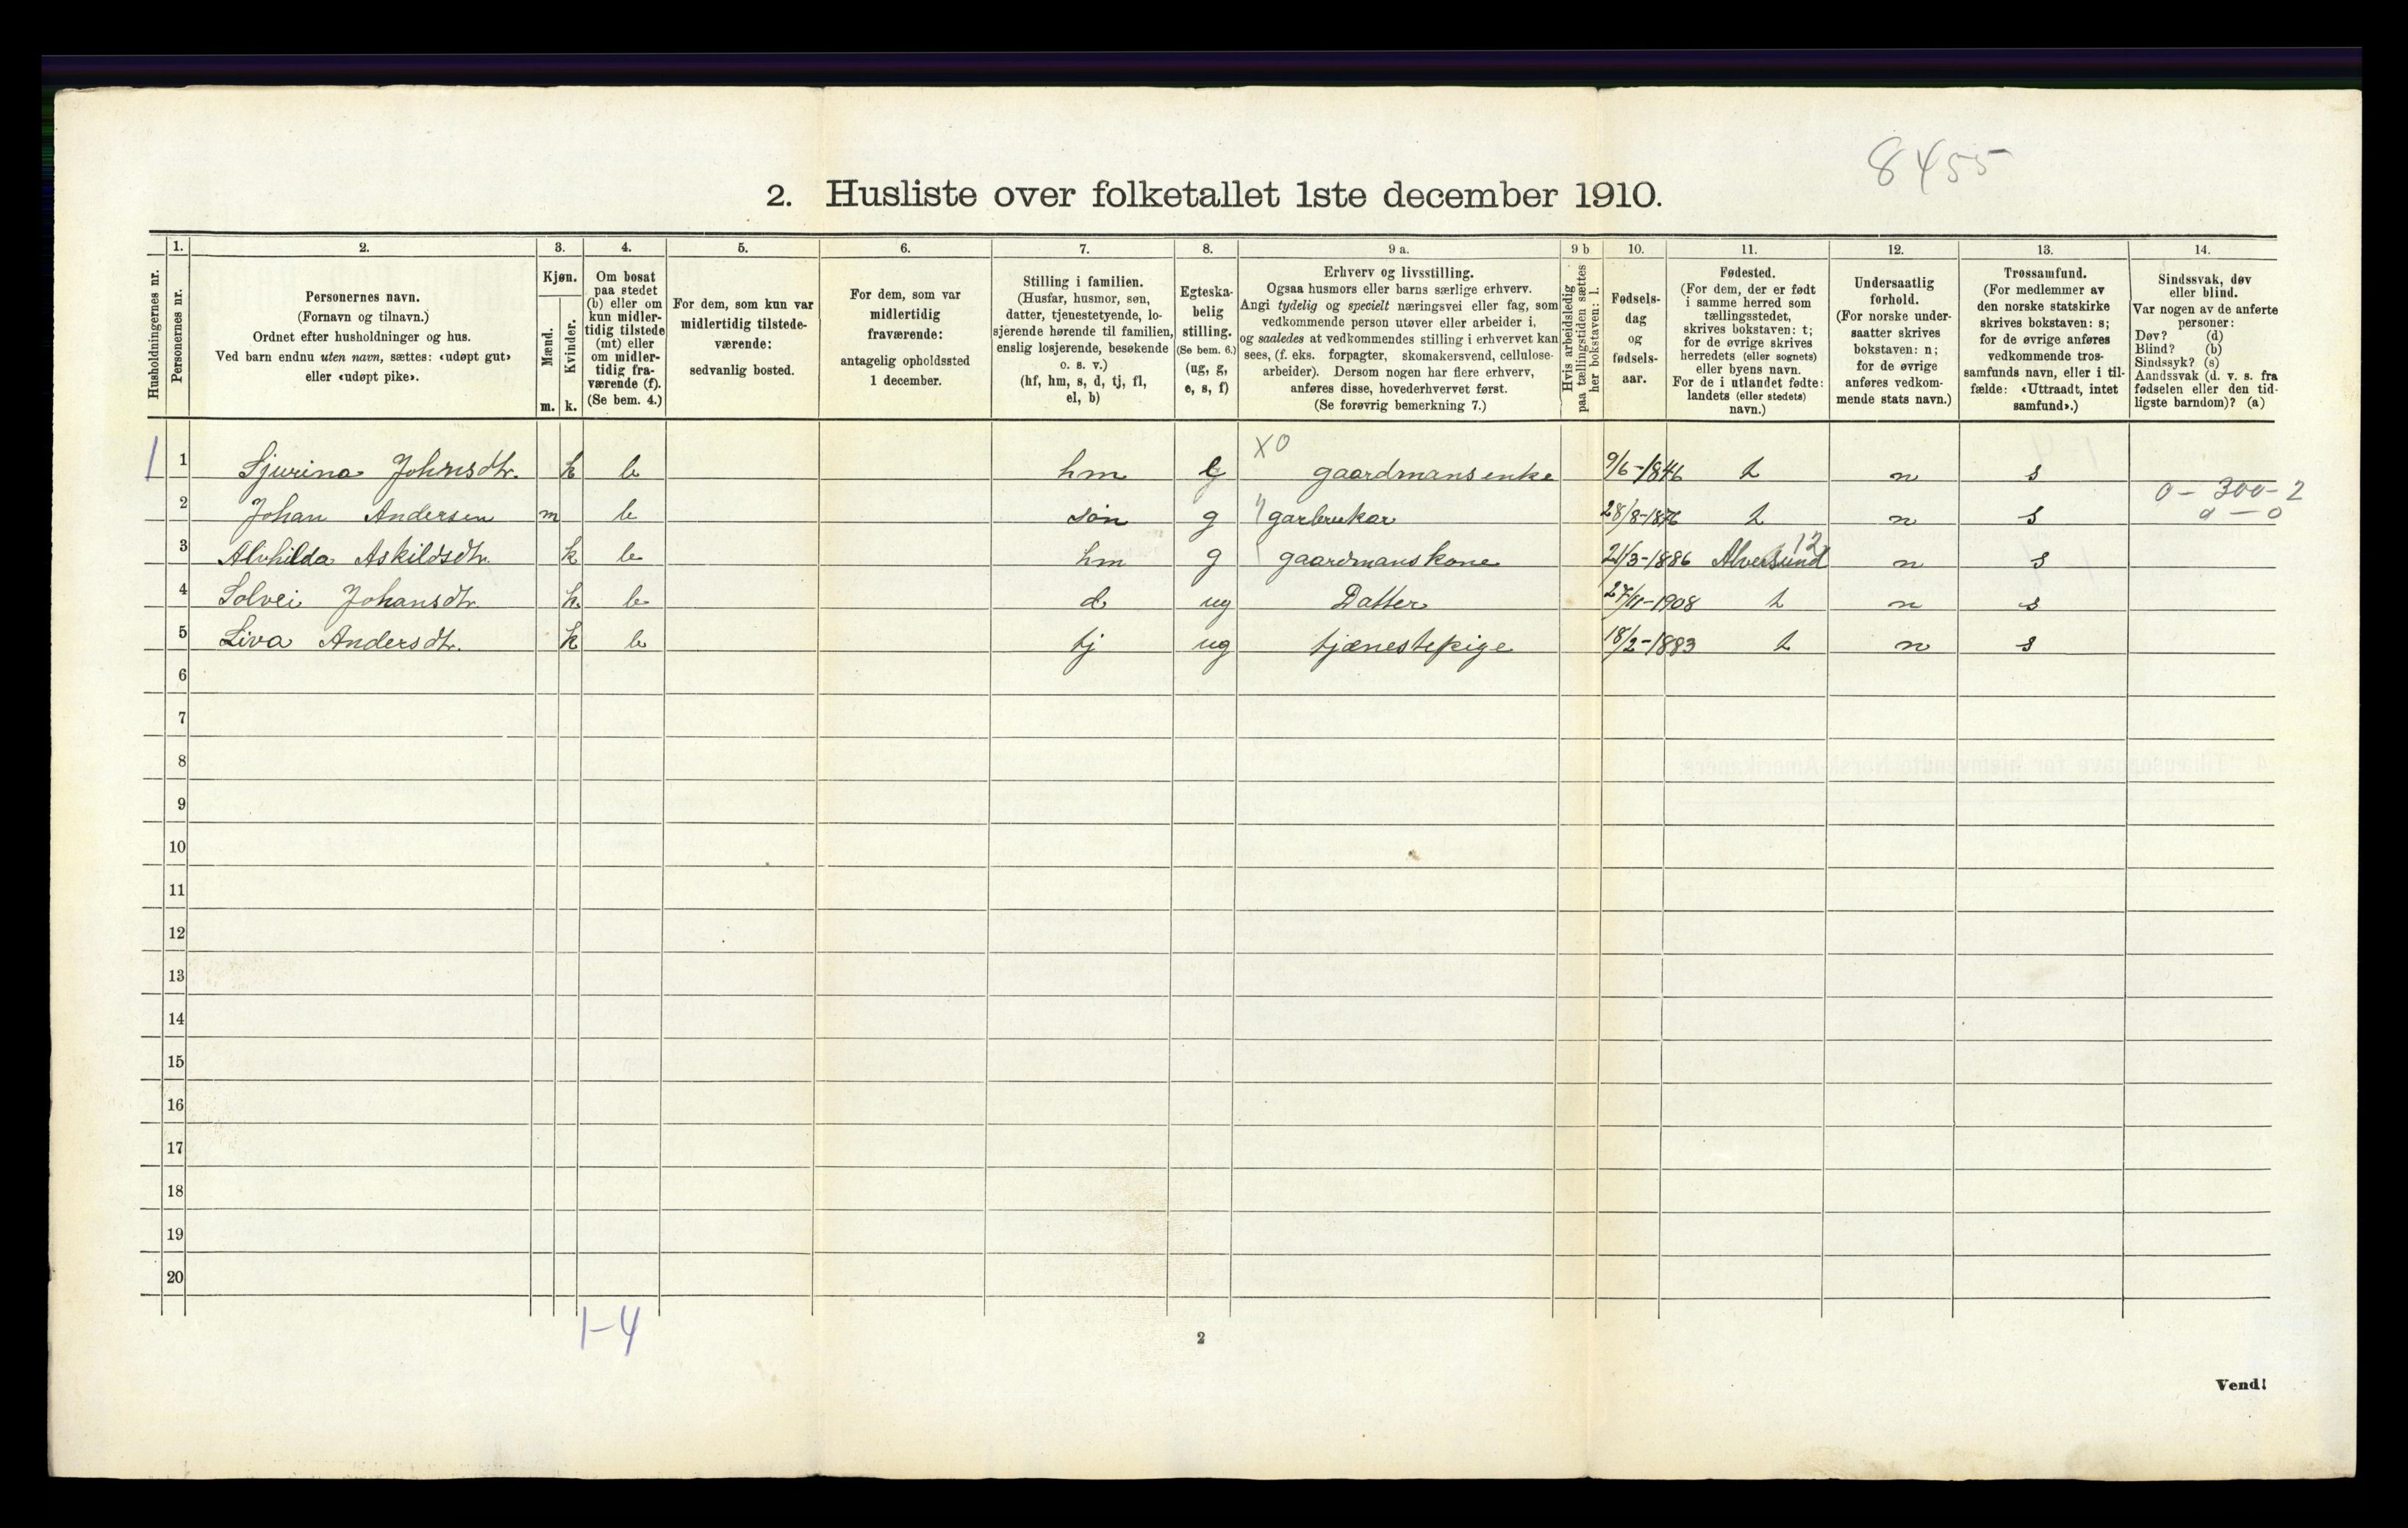 8455
2. Husliste over folketallet 1ste december 1910.
1. 2. 3. 4. 5. 6. 7. 8. 9 a. 9 b 10. 11. 12. 13. 14.
Husholdningernes nr.
Personernes nr.
Personernes navn.
(Fornavn og tilnavn.)
Ordnet efter husholdninger og hus.
Ved barn endnu uten navn, sættes: «udøpt gut»
eller «udøpt pike».
Kjøn.
Mænd.
Kvinder.
m. k.
Om bosat
paa stedet
(b) eller om
kun midler-
tidig tilstede
(mt) eller
om midler-
tidig fra-
værende (f).
(Se bem. 4.)
For dem, som kun var
midlertidig tilstede-
værende:
sedvanlig bosted.
For dem, som var
midlertidig
fraværende:
antagelig opholdssted
1 december.
Stilling i familien.
(Husfar, husmor, søn,
datter, tjenestetyende, lo-
sjerende hørende til familien,
enslig losjerende, besøkende
o. s. v.)
(hf, hm, s, d, tj, fl,
el, b)
Egteska-
belig
stilling.
(Se bem. 6.)
(ug, g,
e, s, f)
Erhverv og livsstilling.
Ogsaa husmors eller barns særlige erhverv.
Angi tydelig og specielt næringsvei eller fag, som
vedkommende person utøver eller arbeider i,
og saaledes at vedkommendes stilling i erhvervet kan
sees, (f. eks. forpagter, skomakersvend, cellulose-
arbeider). Dersom nogen har flere erhverv,
anføres disse, hovederhvervet først.
(Se forøvrig bemerkning 7.)
Hvis arbeidsledig
paa tællingstiden sættes
her bokstaven: l.
Fødsels-
dag
og
fødsels-
aar.
Fødested.
(For dem, der er født
i samme herred som
tællingsstedet,
skrives bokstaven: t;
for de øvrige skrives
herredets (eller sognets)
eller byens navn.
For de i utlandet fødte:
landets (eller stedets)
navn.)
Undersaatlig
forhold.
(For norske under-
saatter skrives
bokstaven: n;
for de øvrige
anføres vedkom-
mende stats navn.)
Trossamfund.
(For medlemmer av
den norske statskirke
skrives bokstaven: s;
for de øvrige anføres
vedkommende tros-
samfunds navn, eller i til-
fælde: «Uttraadt, intet
samfund».)
Sindssvak, døv
eller blind.
Var nogen av de anførte
personer:
Døv? (d)
Blind? (b)
Sindssyk? (s)
Aandssvak (d. v. s. fra
fødselen eller den tid-
ligste barndom)? (a)
X0
1 1 Sjurina Johnsdtr. k b hm gaardmansenke 9/6-1846 t n s
0 - 300 - 2
2 Johan Andersen m b søn g garbrukar 28/8-1876 t n s
a - 0
12
3 Alvhilda Askildsdtr. k b hm g gaardmanskone 21/3-1886 Alversund n s
4 Solvei Johansdtr. k b d ug Datter 27/11-1908 t n s
5 Liva Andersdtr. k b tj ug tjænestepige 18/2-1883 t n s
6
7
8
9
10
11
12
13
14
15
16
17
18
19
20
1-4
2
Vend!